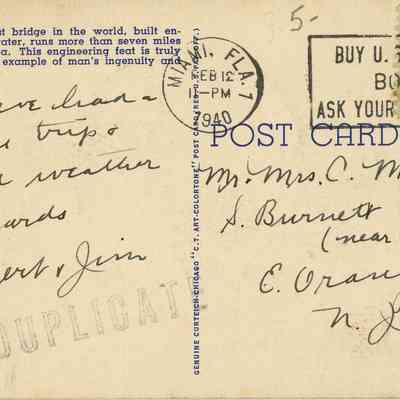 t bridge in the world, built en-
ater, runs more than seven miles
a. This engineering feat is truly
example of man's ingenuity and
ve had a
trip &
weather
ards
ert & Jim
DUPLICAT
GENUINE CURTEICH-CHICAGO "C.T. ART-COLORTONE" POST CARD (REG. U.S. PAT. OFF.)
5-
MIAMI, FLA. 7
FEB 12
-PM
1940
BUY U. S
BO
ASK YOUR
POST CARD
Mr. Mrs. C. M
S. Burnett
(near
E. Oran
N. J